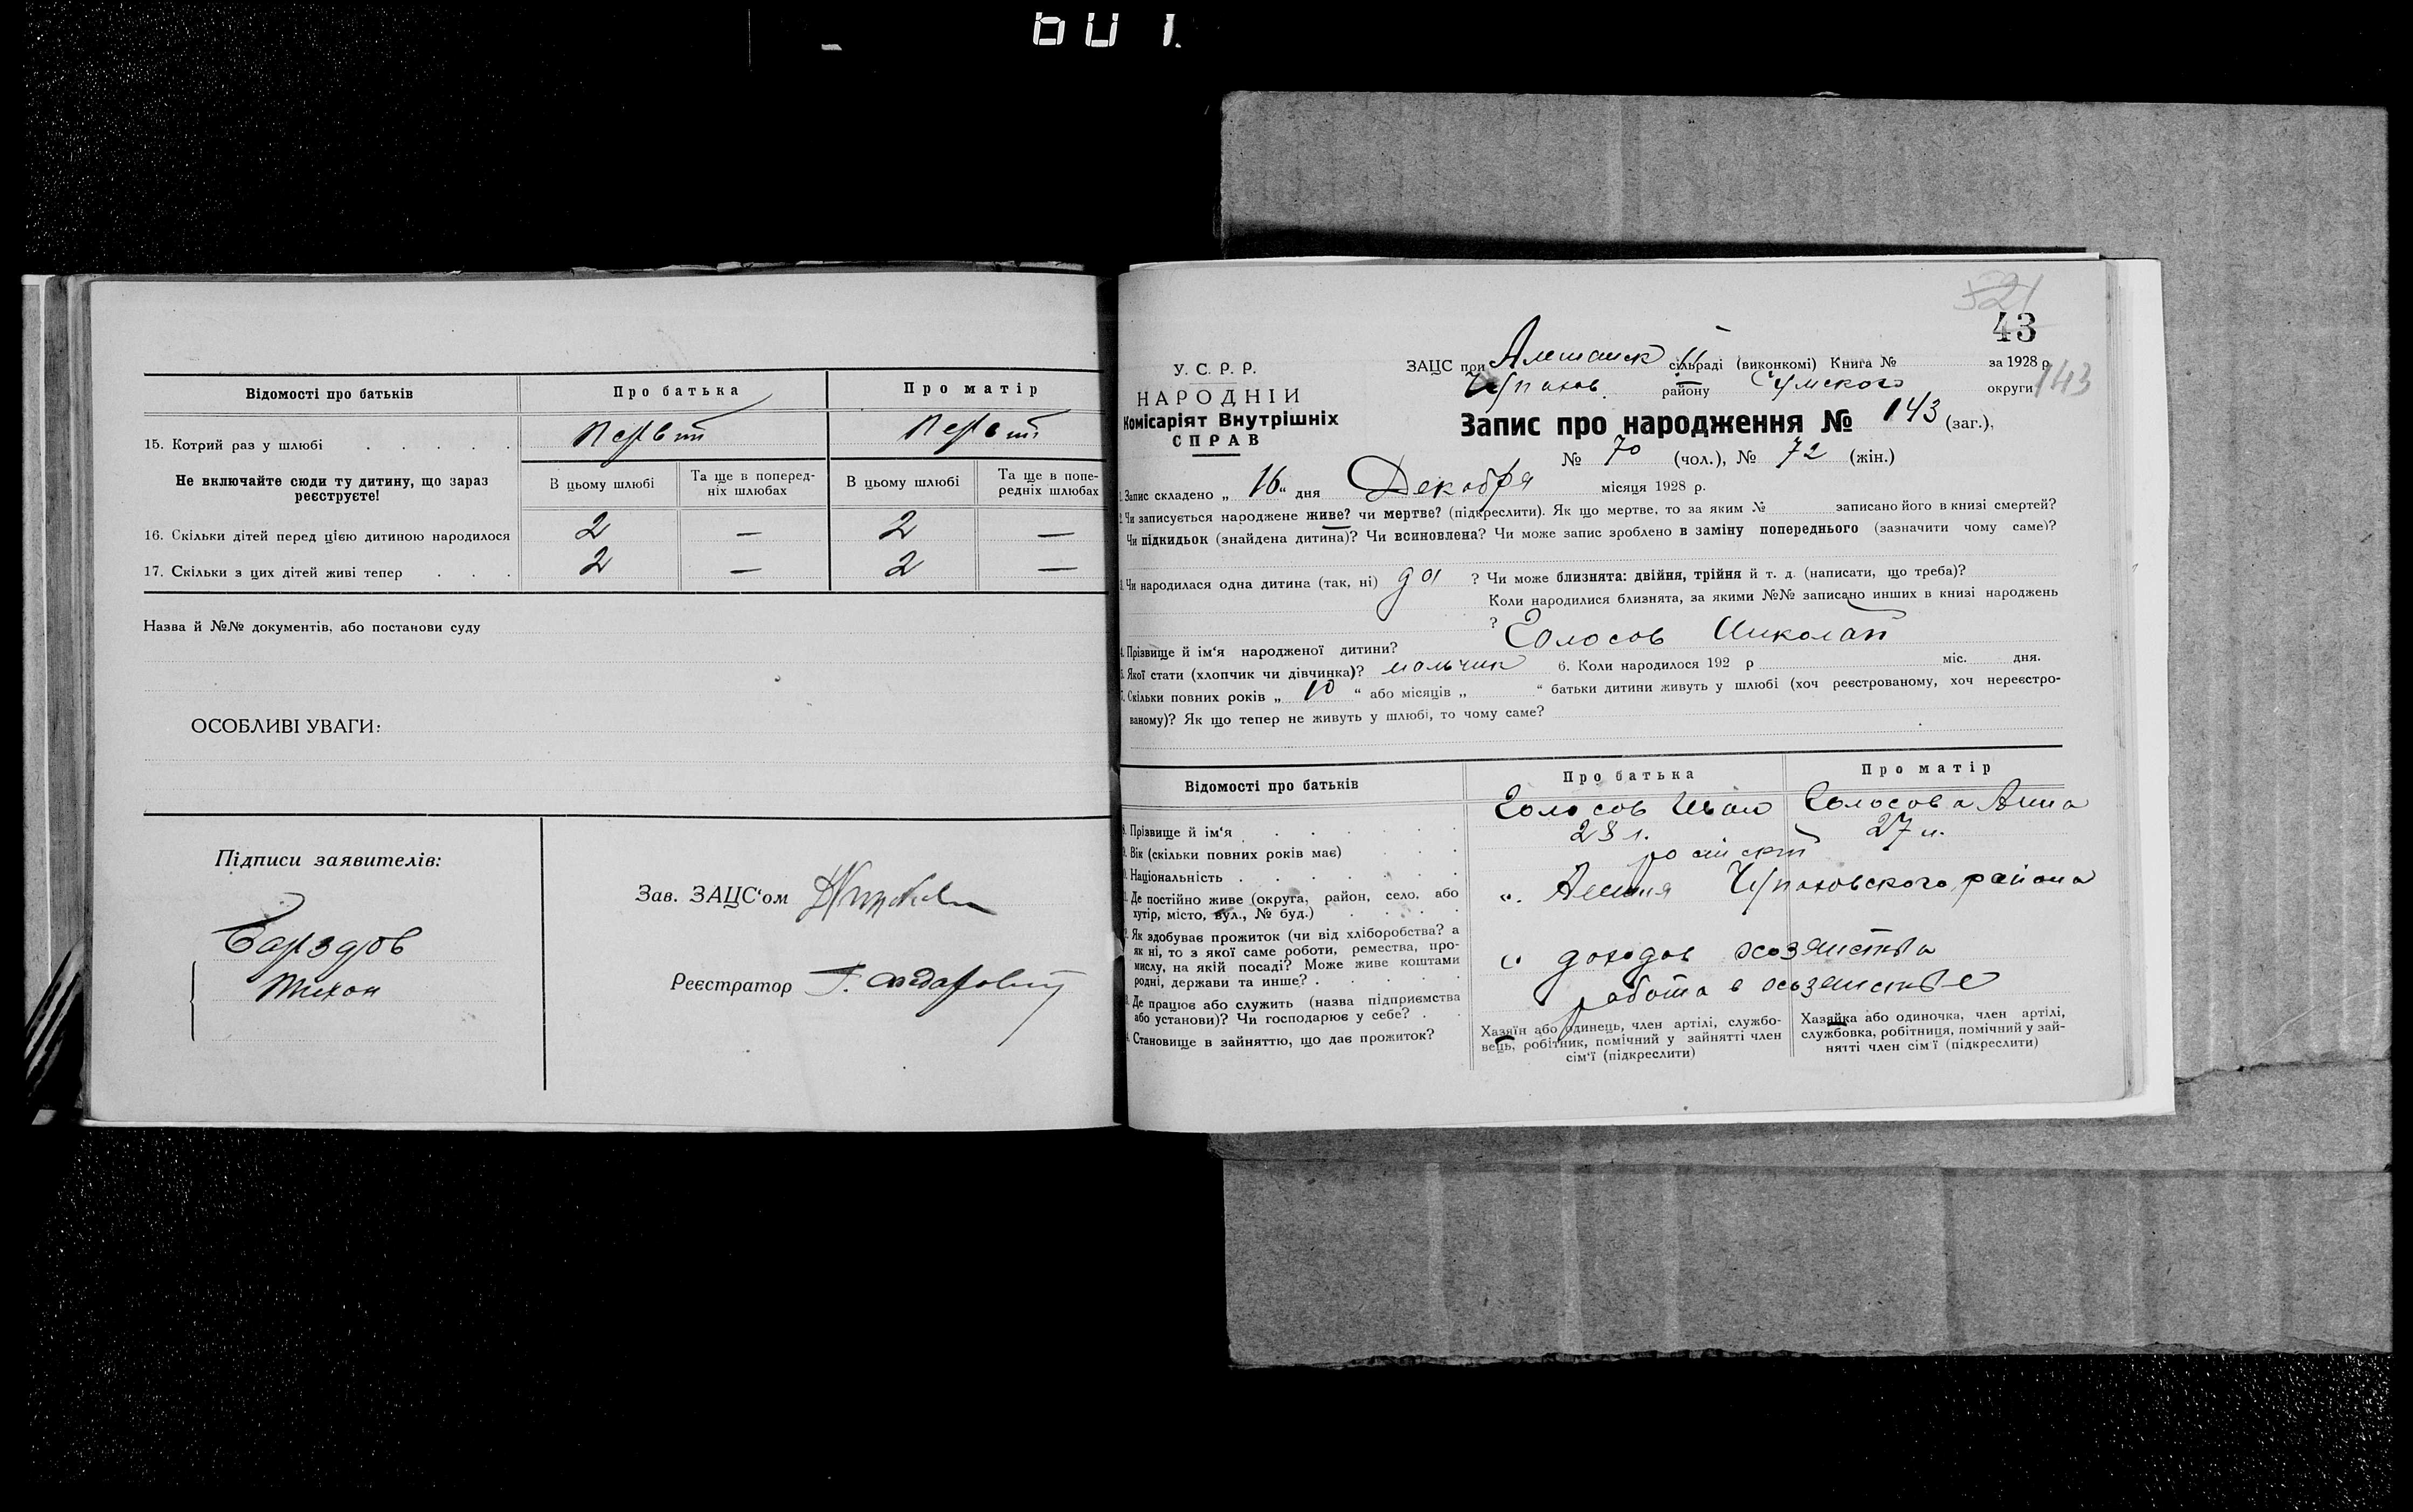 601.
Відомості про батьків
Про батька
Про матір
15. Котрий раз у шлюбі . . . . .
первый
первый
Не включайте сюди ту дитину, що зараз
реєструєте!
В цьому шлюбі
Та ще в поперед-
ніх шлюбах
В цьому шлюбі
Та ще в попе-
редніх шлюбах
16. Скільки дітей перед цією дитиною народилося
2 — 2 —
17. Скільки з цих дітей живі тепер . . .
2 — 2 —
Назва й №№ документів, або постанови суду
ОСОБЛИВІ УВАГИ:
Підписи заявителів:
Тихон
Зав. ЗАЦС'ом
Реєстратор
521
43
У. С. Р. Р.
НАРОДНІЙ
Комісаріят Внутрішніх
СПРАВ
ЗАЦС при Алешанск сільраді (виконкомі) Книга № за 1928 р.
Чупахов. району Сумского округи 143
Запис про народження № 143 (заг.),
№ 70 (чол.), № 72 (жін.)
1. Запис складено „ 16 “ дня Декабря місяця 1928 р.
2. Чи записується народжене живе? чи мертве? (підкреслити). Як що мертве, то за яким № записано його в книзі смертей?
Чи підкидьок (знайдена дитина)? Чи всиновлена? Чи може запис зроблено в заміну попереднього (зазначити чому саме)?
3. Чи народилася одна дитина (так, ні) да ? Чи може близнята: двійня, трійня й т. д. (написати, що треба)?
Коли народилися близнята, за якими №№ записано инших в книзі народжень
?
4. Прізвище й ім'я народженої дитини? Голосов Николай
5. Якої стати (хлопчик чи дівчинка)? мальчик 6. Коли народилося 192 р міс. дня.
7. Скільки повних років „ 10 “ або місяців „ “ батьки дитини живуть у шлюбі (хоч реєстрованому, хоч нереєстро-
ваному)? Як що тепер не живуть у шлюбі, то чому саме?
Відомості про батьків
Про батька
Про матір
8. Прізвище й ім'я . . . . . .
Голосов Иван
Голосова Анна
9. Вік (скільки повних років має) . . .
28 л.
27 л.
10. Національність . . . . . . .
11. Де постійно живе (округа, район, село, або
хутір, місто, вул., № буд.) . . . .
с. Алешня Чупаховского района
12. Як здобуває прожиток (чи від хліборобства? а
як ні, то з якої саме роботи, ремества, про-
мислу, на якій посаді? Може живе коштами
родні, держави та инше? . . . . .
с доходов хозяйства
13. Де працює або служить (назва підприємства
або установи)? Чи господарює у себе? . .
работа в хозяйстве
14. Становище в зайняттю, що дає прожиток?
Хазяїн або одинець, член артілі, службо-
вець, робітник, помічний у зайнятті член
сім'ї (підкреслити)
Хазяйка або одиночка, член артілі,
службовка, робітниця, помічний у зай-
нятті член сім'ї (підкреслити)